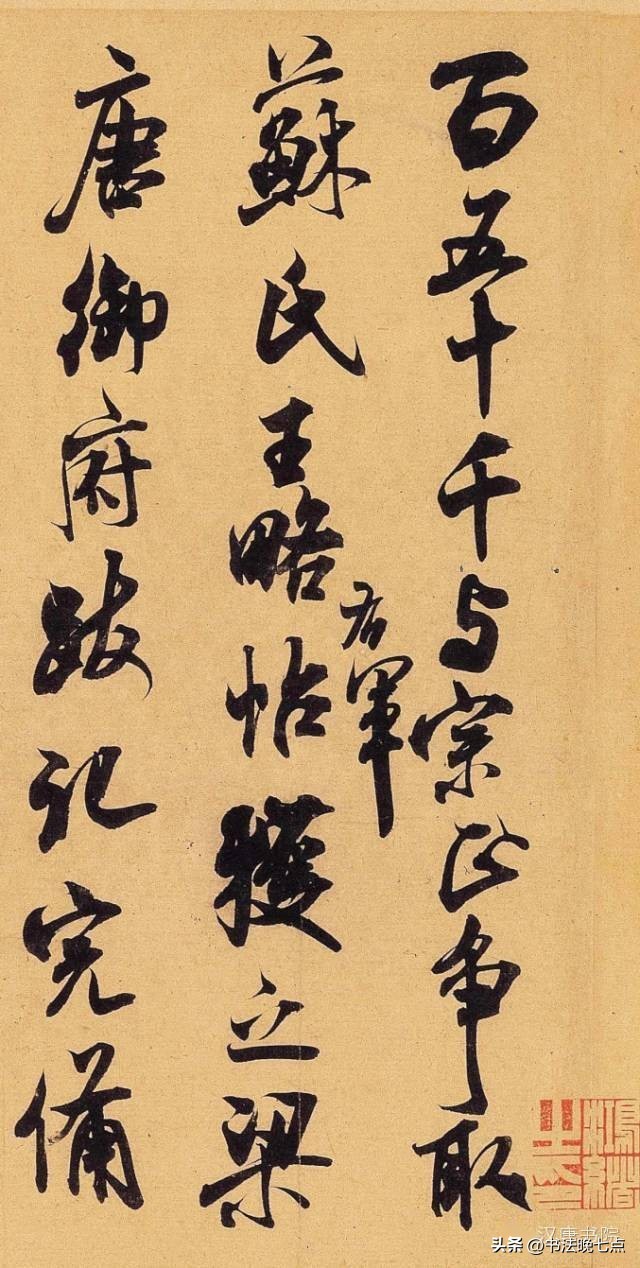 百五十千与宗正争取
蘇氏王略帖右軍獲之梁
唐御府跋记完備
汉唐书院
头条 @书法晚七点